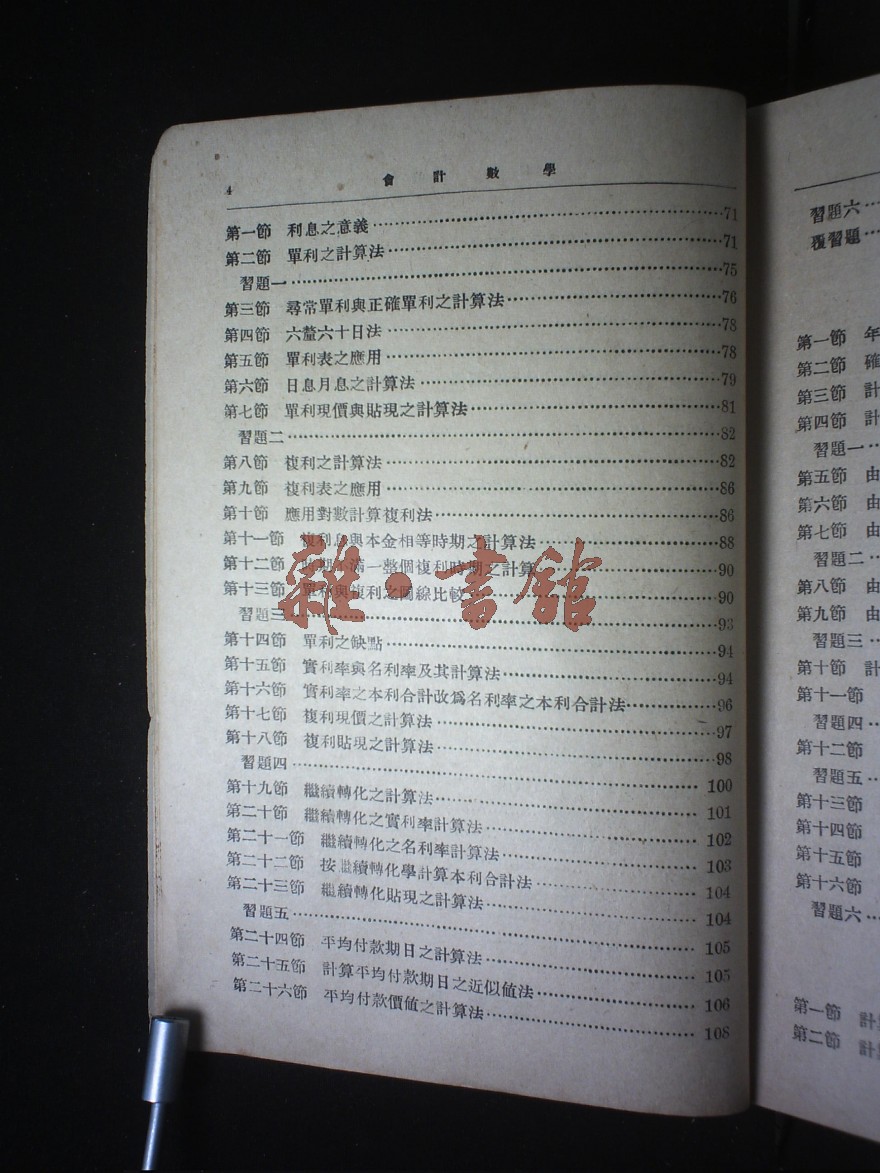 4 會計數學
第一節 利息之意義……71
第二節 單利之計算法……71
習題一……75
第三節 尋常單利與正確單利之計算法……76
第四節 六釐六十日法……78
第五節 單利表之應用……78
第六節 日息月息之計算法……79
第七節 單利現價與貼現之計算法……81
習題二……82
第八節 複利之計算法……82
第九節 複利表之應用……86
第十節 應用對數計算複利法……86
第十一節 複利息與本金相等時期之計算法……88
第十二節 時期不滿一整個複利時期之計算……90
第十三節 單利與複利之圖線比較……90
習題三……93
第十四節 單利之缺點……94
第十五節 實利率與名利率及其計算法……94
第十六節 實利率之本利合計改爲名利率之本利合計法……96
第十七節 複利現價之計算法……97
第十八節 複利貼現之計算法……98
習題四……100
第十九節 繼續轉化之計算法……101
第二十節 繼續轉化之實利率計算法……102
第二十一節 繼續轉化之名利率計算法……103
第二十二節 按繼續轉化學計算本利合計法……104
第二十三節 繼續轉化貼現之計算法……104
習題五……105
第二十四節 平均付款期日之計算法……105
第二十五節 計算平均付款期日之近似値法……106
第二十六節 平均付款價値之計算法……108
雜·書館
習題六……
覆習題……
第一節 年
第二節 確
第三節 計
第四節 計
習題一……
第五節 由
第六節 由
第七節 由
習題二……
第八節 由
第九節 由
習題三……
第十節 計
第十一節
習題四……
第十二節
習題五……
第十三節
第十四節
第十五節
第十六節
習題六……
第一節 計
第二節 計